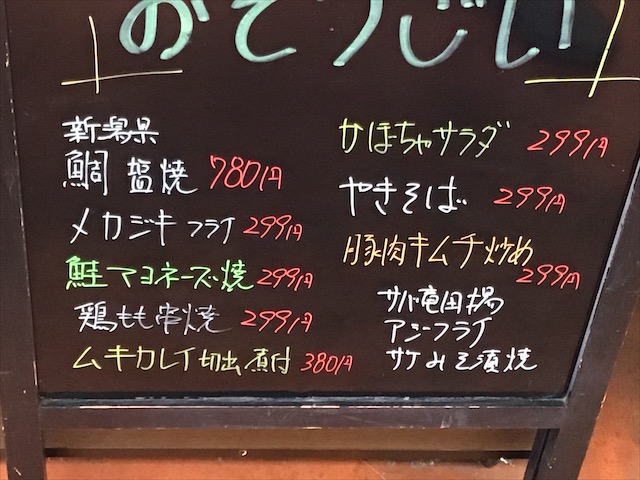 おそうざい
新潟県
鯛 塩焼 780円
メカジキフライ 299円
鮭マヨネーズ焼 299円
鶏もも串焼 299円
ムキカレイ切出煮付 380円
かぼちゃサラダ 299円
やきそば 299円
豚肉キムチ炒め
299円
サバ竜田揚
アジフライ
サケみそ漬焼